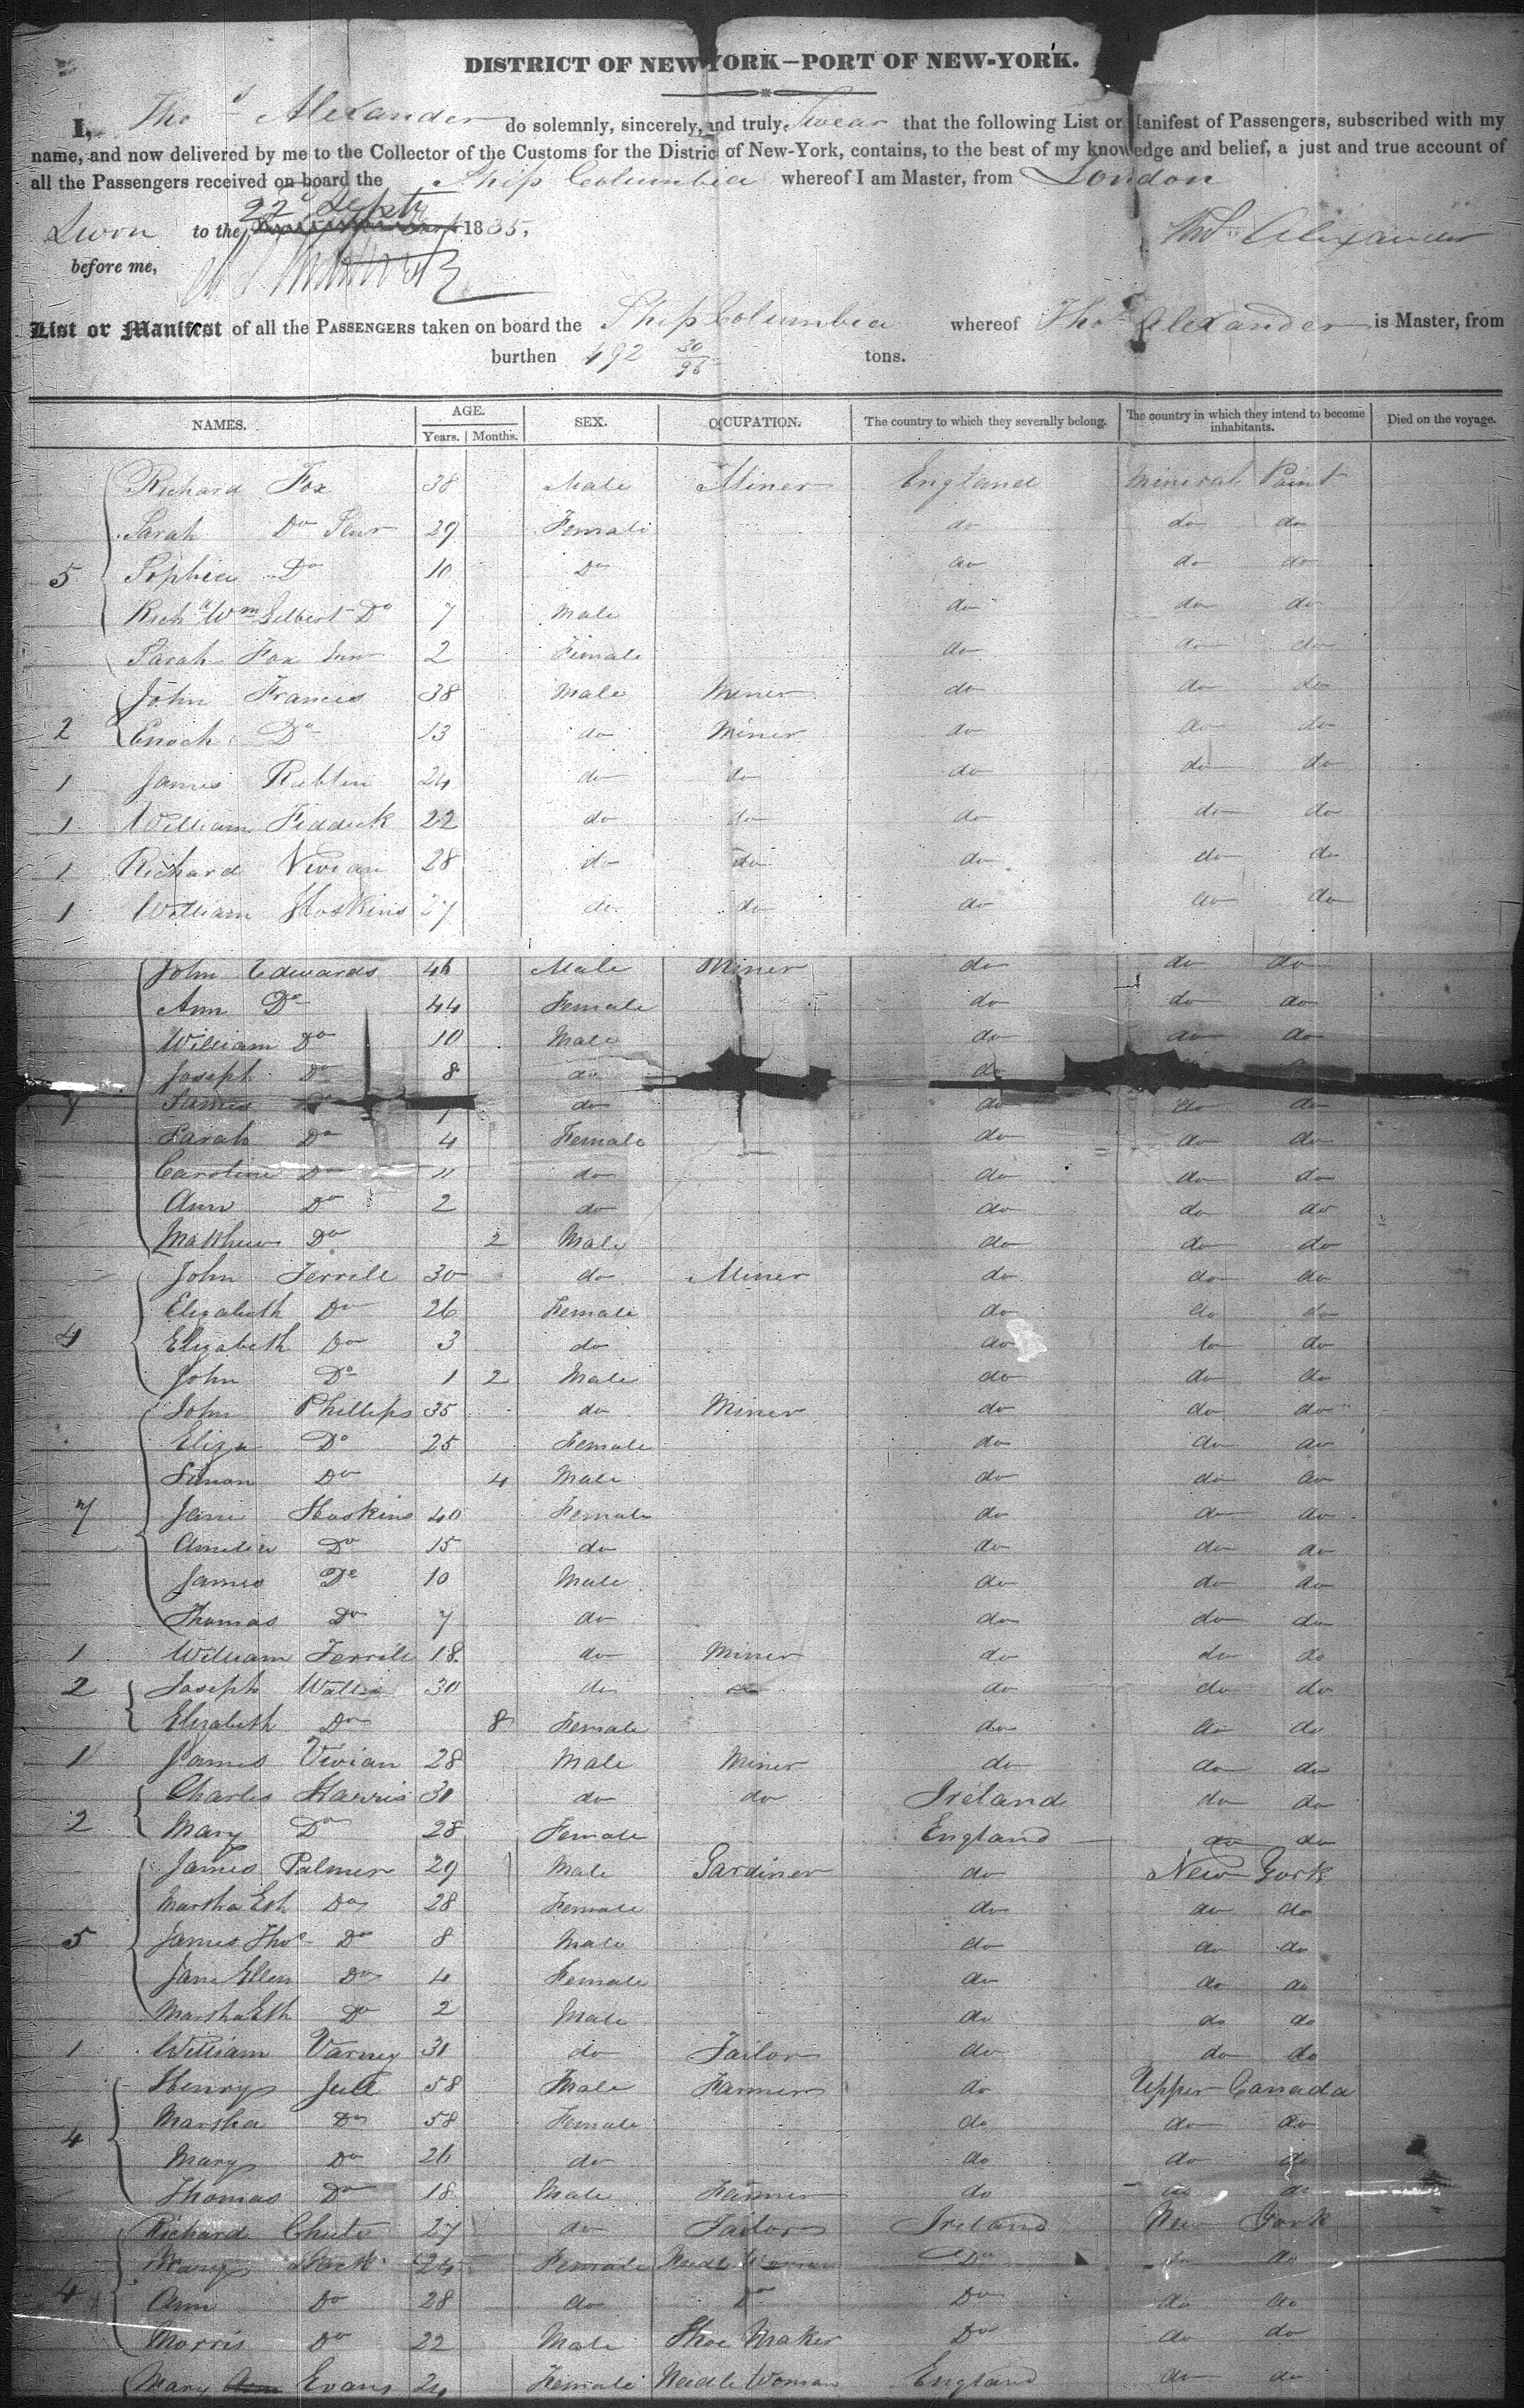 DISTRICT OF NEW YORK—PORT OF NEW-YORK.
I, Thos Alexander do solemnly, sincerely, and truly Swear that the following List or Manifest of Passengers, subscribed with my
name, and now delivered by me to the Collector of the Customs for the District of New-York, contains, to the best of my knowledge and belief, a just and true account of
all the Passengers received on board the Ship Columbia whereof I am Master, from London
Sworn to the 22d Septr 1835.
Thos Alexander
before me,
List or Manifest of all the PASSENGERS taken on board the Ship Columbia whereof Thos Alexander is Master, from
burthen 492 30/95 tons.
NAMES. AGE. Years. Months. SEX. OCCUPATION. The country to which they severally belong. The country in which they intend to become inhabitants. Died on the voyage.
Richard Fox 38 Male Miner England Mineral Point
Sarah Do Senr 29 Female do do do
5 Sophia Do 10 Do do do do
Richd Wm Gilbert Do 7 Male do do do
Sarah Fox Junr 2 Female do do do
John Francis 38 Male Miner do do do
2 Enoch Do 13 do Miner do do do
1 James 24 do do do do do
1 William Fiddick 22 do do do do do
1 Richard Vivian 28 do do do do do
1 William Hoskins 27 do do do do do
John Edwards 46 Male Miner do do do
Ann Do 44 Female do do do
William Do 10 Male do do do
Joseph Do 8 do do
James do do do do
Sarah Do 4 Female do do do
Caroline Do 11 do do do do
Ann Do 2 do do do do
Matthew Do 2 Male do do do
John Terrill 30 do Miner do do do
Elizabeth Do 26 Female do do do
4 Elizabeth Do 3 do do do do
John Do 1 2 Male do do do
John Phillips 35 do Miner do do do
Eliza Do 25 Female do do do
Simon Do 4 Male do do do
7 Jane Hoskins 40 Female do do do
Amelia Do 15 do do do do
James Do 10 Male do do do
Thomas Do 7 do do do do
1 William Terrill 18 do Miner do do do
2 Joseph Wallis 30 do do do do do
Elizabeth Do 8 Female do do do
1 James Vivian 28 Male Miner do do do
Charles Harris 31 do do Ireland do do
2 Mary Do 28 Female England do do
James Palmer 29 Male Gardiner do New York
Martha Eth Do 28 Female do do do
5 James Thos Do 8 Male do do do
Jane Ellen Do 4 Female do do do
Martha Eth Do 2 Male do do do
1 William Varney 31 do Tailor do do do
Henry Jull 58 Male Farmer do Upper Canada
Martha Do 58 Female do do do
4 Mary Do 26 do do do do
Thomas Do 18 Male Farmer do do do
Richard Chute 27 do Tailor Ireland New York
Mary 24 Female Needle Woman Do do do
4 Ann Do 28 do Do Do do do
Morris Do 22 Male Shoe Maker Do do do
Mary Ann Evans 24 Female Needle Woman England do do